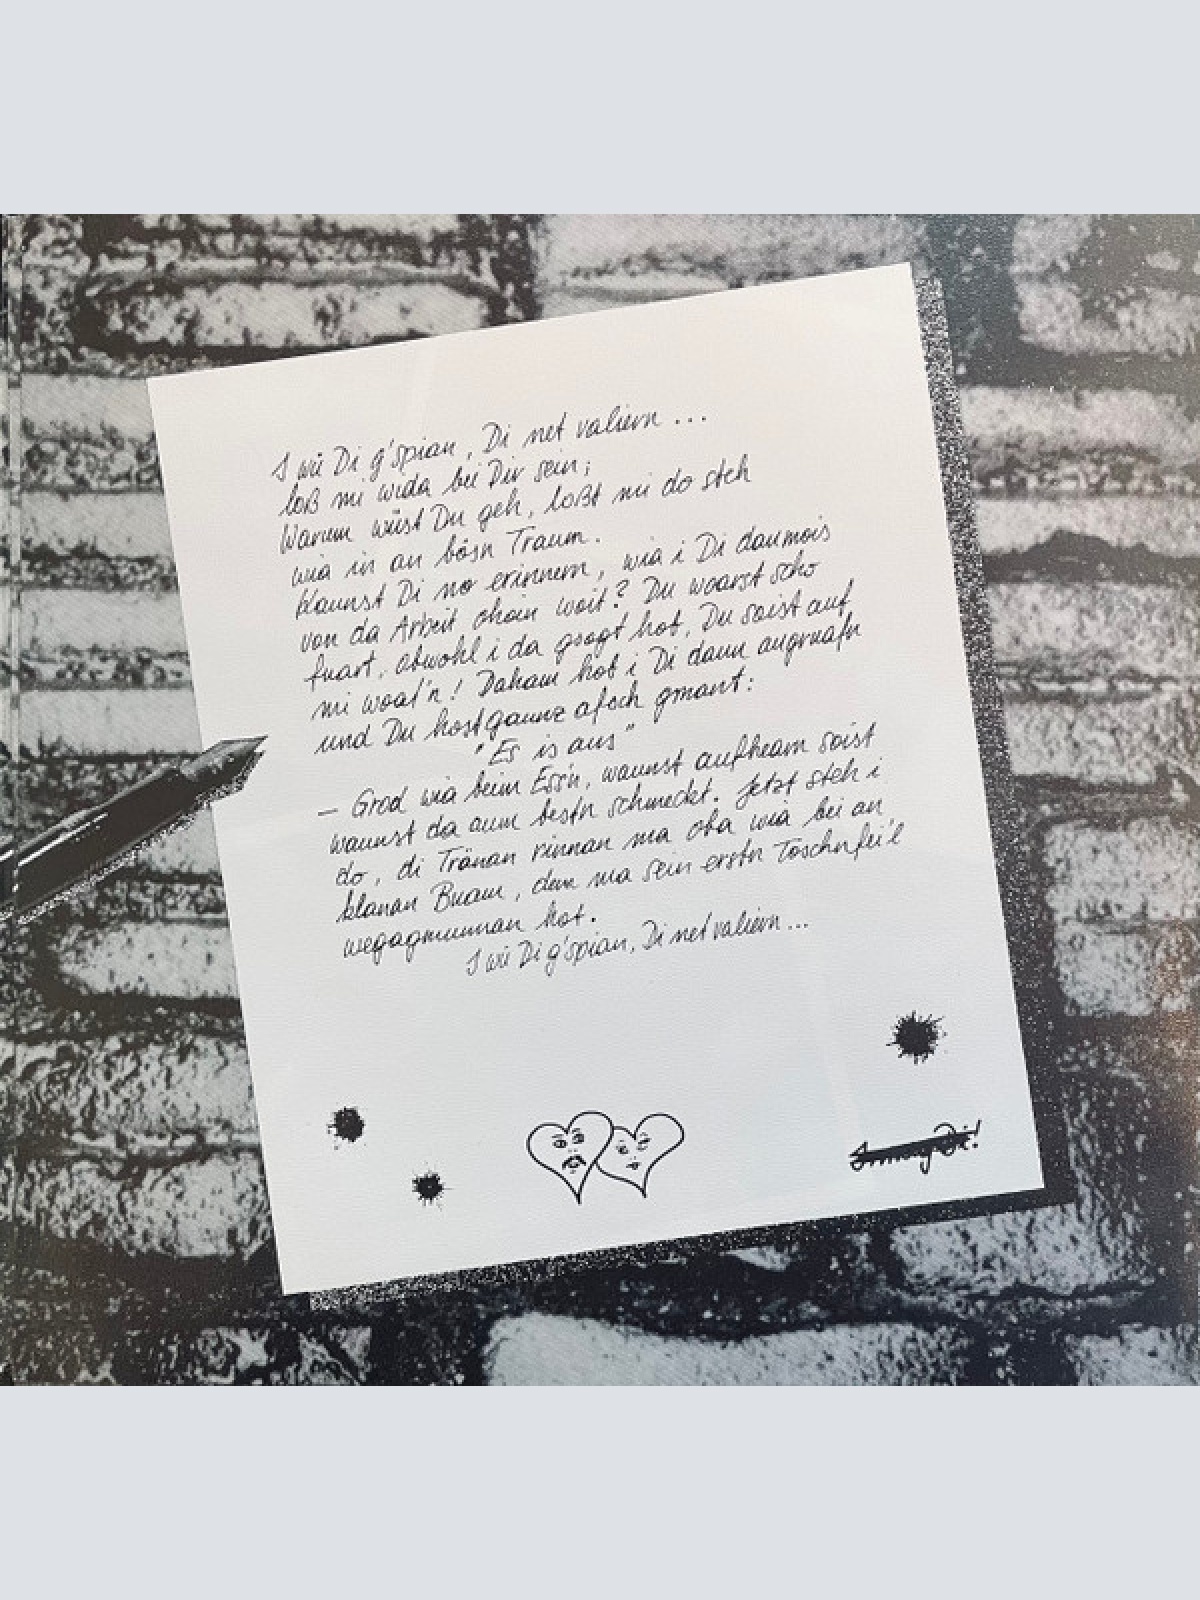 I wü Di g'spian, Di net valiern ...
loß mi wida bei Dir sein;
Warum wüst Du geh, loßt mi do steh
wia in an bösn Traum.
Kaunst Di no erinnern, wia i Di daumois
von da Arbeit ohoin woit? Du woarst scho
fuart, obwohl i da gsogt hob, Du soist auf
mi woat'n! Daham hob i Di dann augruafn
und Du host gaunz afoch gmant:
"Es is aus"
– Grod wia beim Ess'n, waunst aufhean soist
waunst da aum bestn schmeckt. Jetzt steh i
do, di Tränan rinnan ma oba wia bei an
klanan Buam, dem ma sein erstn Toschnfei'l
wegagnumman hot.
I wü Di g'spian, Di net valiern ...